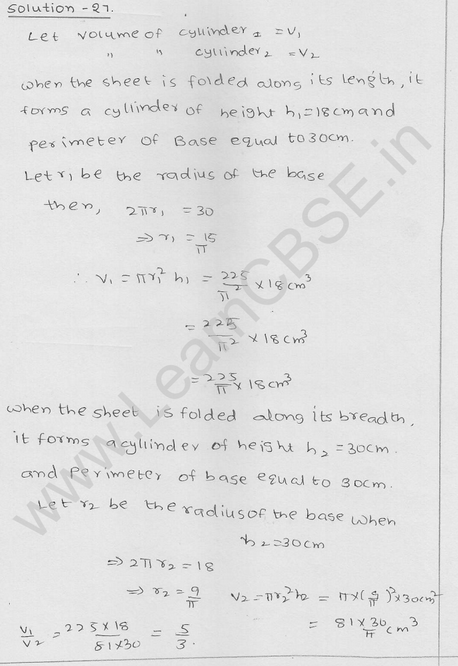 Solution - 27.
Let volume of cyllinder 1 = V₁
" " cyllinder₂ = V₂
when the sheet is folded along its length, it
forms a cyllinder of height h₁=18cm and
perimeter of Base equal to 30cm.
Let r₁ be the radius of the base
then, 2πr₁ = 30
⇒ r₁ = 15/π
∴ V₁ = πr₁² h₁ = 225/π² × 18 cm³
= 225/π² × 18 cm³
= 225/π × 18 cm³
when the sheet is folded along its breadth,
it forms a cyllinder of height h₂ = 30cm.
and perimeter of base equal to 30cm.
Let r₂ be the radius of the base when
h₂=30cm
⇒ 2πr₂ = 18
⇒ r₂ = 9/π V₂ = πr₂²h₂ = π×(9/π)²×30cm³
V₁/V₂ = 225×18/81×30 = 5/3. = 81×30/π cm³
www.LearnCBSE.in